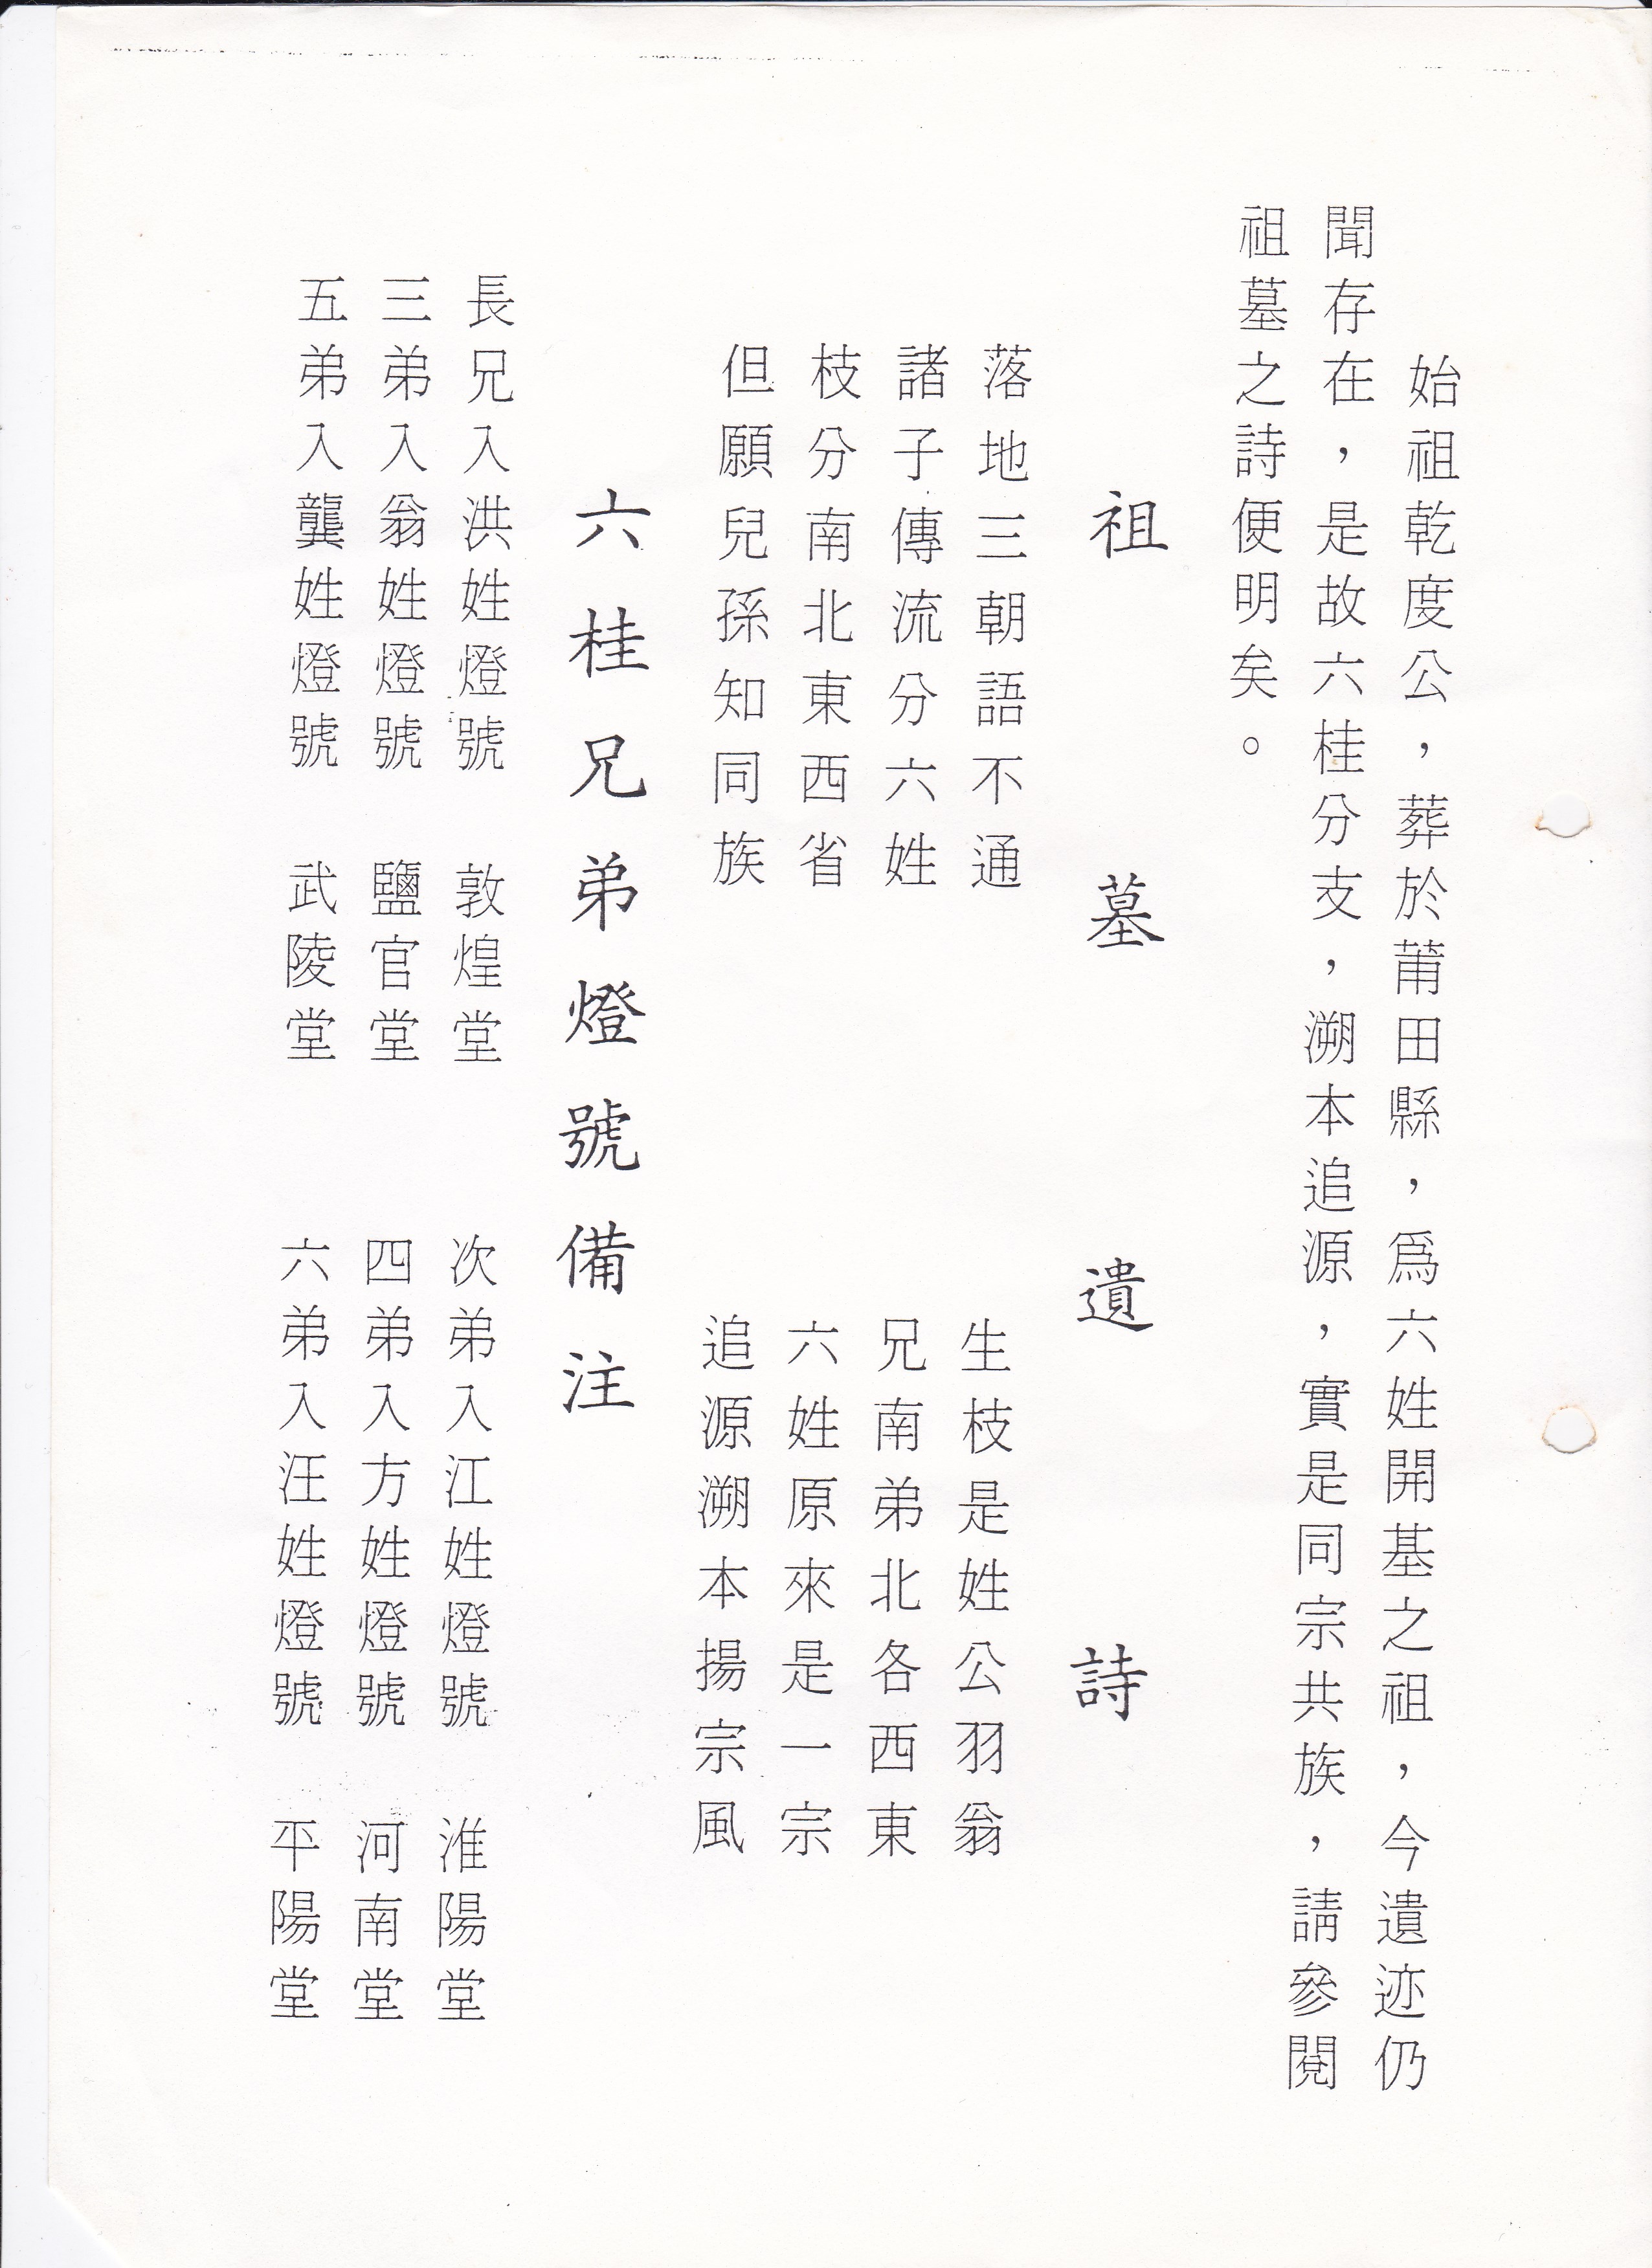 始祖乾度公，葬於莆田縣，爲六姓開基之祖，今遺迹仍
聞存在，是故六桂分支，溯本追源，實是同宗共族，請參閱
祖墓之詩便明矣。
祖墓遺詩
落地三朝語不通　生枝是姓公羽翁
諸子傳流分六姓　兄南弟北各西東
枝分南北東西省　六姓原來是一宗
但願兒孫知同族　追源溯本揚宗風
六桂兄弟燈號備注
長兄入洪姓燈號　敦煌堂　次弟入江姓燈號　淮陽堂
三弟入翁姓燈號　鹽官堂　四弟入方姓燈號　河南堂
五弟入龔姓燈號　武陵堂　六弟入汪姓燈號　平陽堂